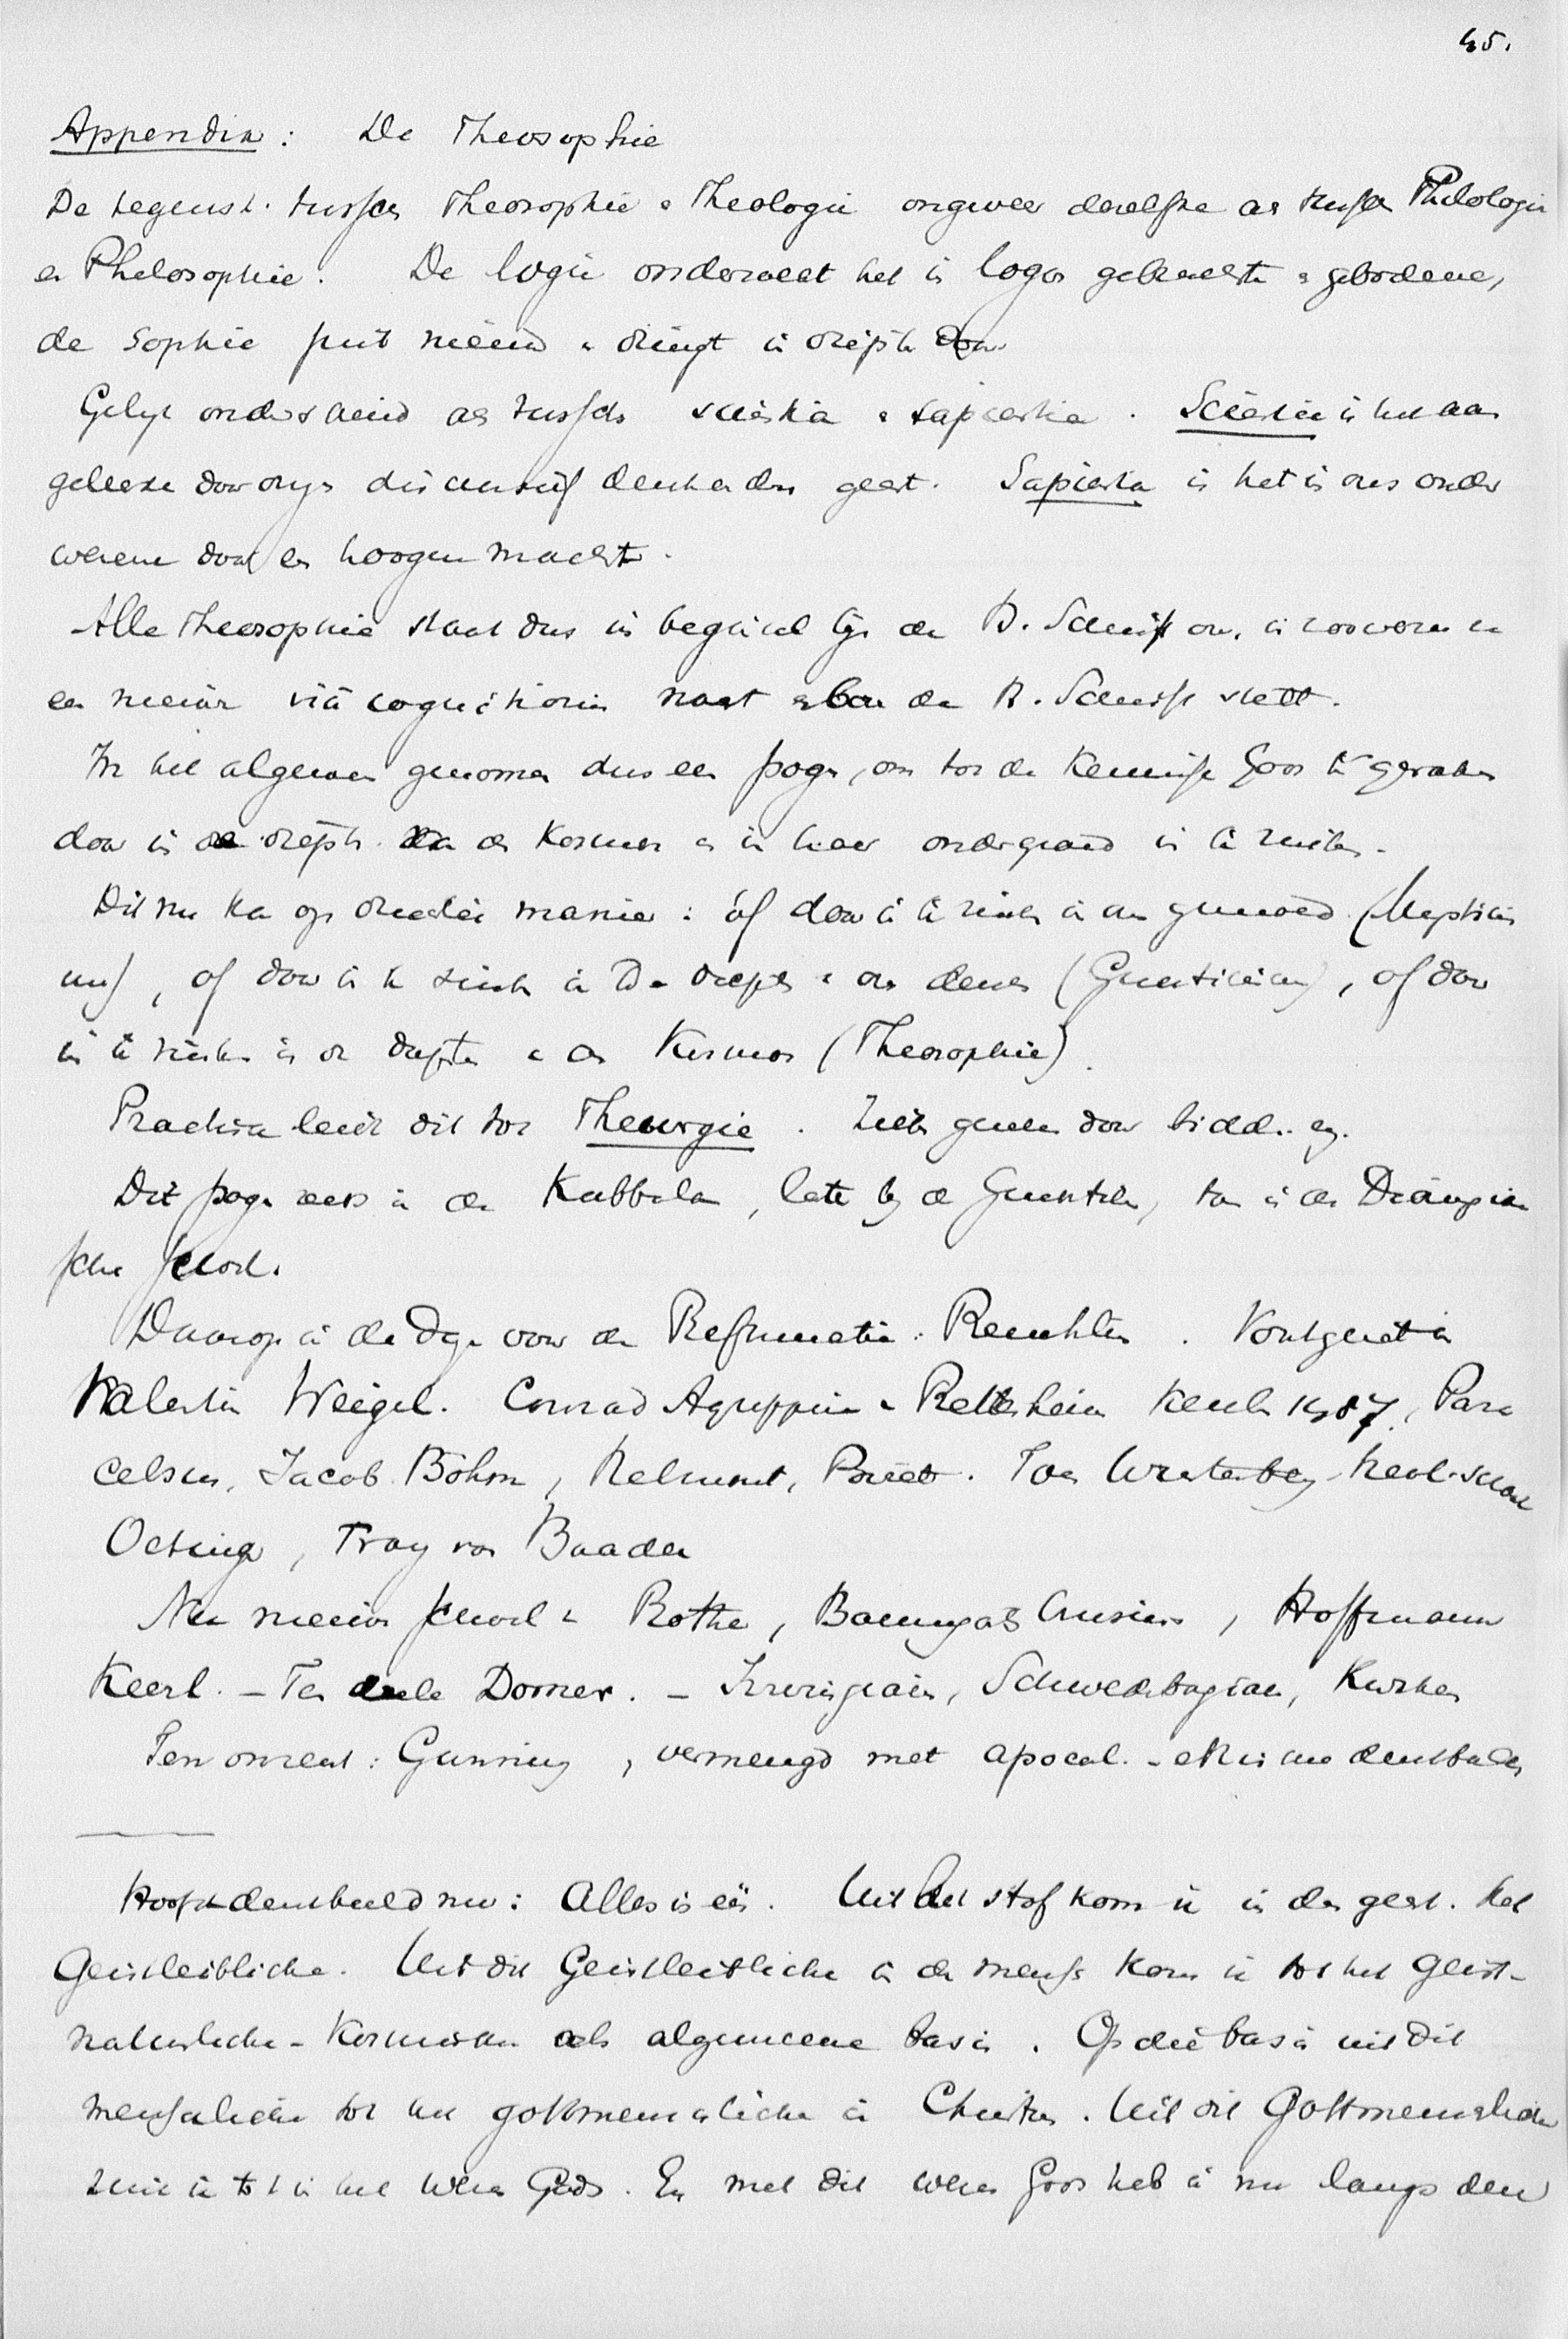 45.
Appendix: De Theosophie
De tegenst. tusschen Theosophie & Theologie ongeveer dezelfde as tusschen Philologie
en Philosophie. De logie onderzoekt het in logos gebrachte & gebodene,
de Sophie put nieuw & dringt in diepte door
Gelijk onderscheid as tusschen scientia & sapientia. Scientia is het aan
geleerde door onzen discursief denkenden geest. Sapientia is het in ons onder
wezene door een hoogere macht.
Alle Theosophie staat dus in beginsel tgn de H. Schrift ov. in zooverre ze
een nieuwe via cognitionis naast & boven de H. Schrift stelt.
In het algemeen genomen dus een pogen, om tot de kennisse Gods te geraken
door in de diepte van de Kosmos & in haar ondergrond in te zinken.
Dit nu kan op drieërlei manier: òf door in te zinken in ons gemoed (Mysticis
mus), of door in te zinken in de diepte v. ons denken (Gnosticisme), of door
in te zinken in de diepte v. den Kosmos (Theosophie).
Practisch leidt dit tot Theurgie. Ziekte genezen door bidden. enz.
Dit pogen reeds in de Kabbala, later bij de Gnostiken, toen in de Dionysian
sche school.
Daarop in de dagen voor de Reformatie: Reuchlin. Voortgezet in
Valentin Weigel. Conrad Agrippa v. Nettesheim, Para
celsus, Jacob Böhm, Helmont, Poiret. Toen Wurtemberg school
Oetinger, Franz von Baader
Nu nieuwe school v. Rothe, Baumgart Crusius, Hoffmann
Keerl. – Ten deele Dorner. – Irvingianen, Schwedenborgianen,
Ten onzent: Gunning, vermengd met apocal. - ethische denkbeelden
Hoofddenkbeeld nu: Alles is één. Uit het stof kom ik in den geest. Het
Geistleibliche. Uit dit Geistleibliche in de mensch kom ik tot het geist-
naturliche - Kosmische als algemeene basis. Op die basis uit dit
menschliche tot het gottmenschliche in Christus. Uit dit Gottmenschliche
zink ik tot in het wezen Gods. En met dit wezen Gods heb ik nu langs den